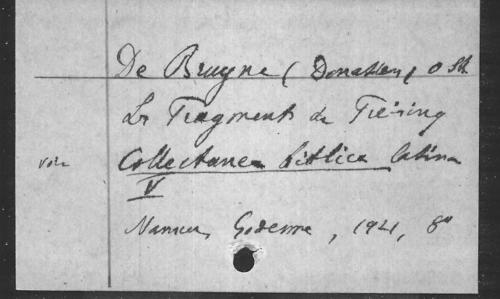 De Bruyne (Donatien) O SB
Les Fragments de Freising
voir Collectanea biblica latina
V
Namur, Godenne, 1921, 8°